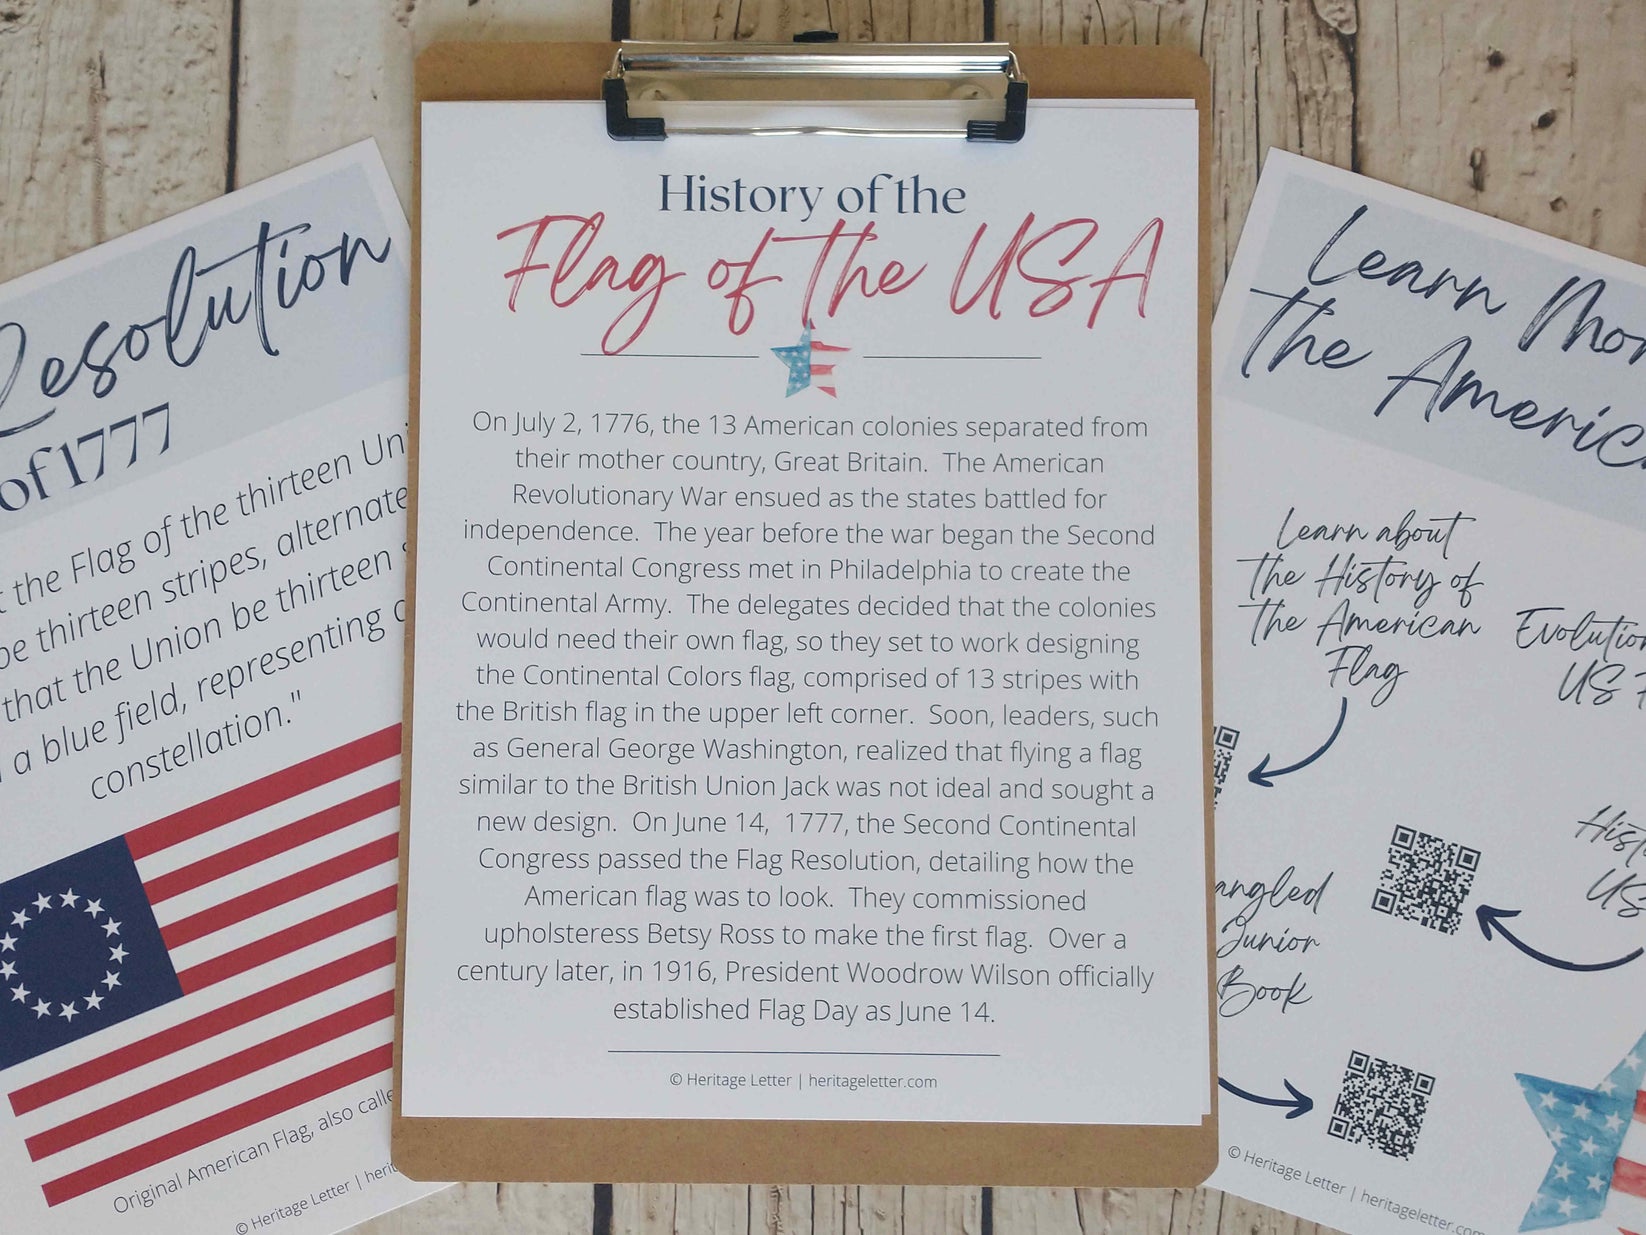 Resolution
of 1777
the Flag of the thirteen
be thirteen stripes, alternate
that the Union be thirteen
a blue field, representing
constellation."
Original American Flag, also
© Heritage Letter |
History of the
Flag of the USA
On July 2, 1776, the 13 American colonies separated from
their mother country, Great Britain. The American
Revolutionary War ensued as the states battled for
independence. The year before the war began the Second
Continental Congress met in Philadelphia to create the
Continental Army. The delegates decided that the colonies
would need their own flag, so they set to work designing
the Continental Colors flag, comprised of 13 stripes with
the British flag in the upper left corner. Soon, leaders, such
as General George Washington, realized that flying a flag
similar to the British Union Jack was not ideal and sought a
new design. On June 14, 1777, the Second Continental
Congress passed the Flag Resolution, detailing how the
American flag was to look. They commissioned
upholsteress Betsy Ross to make the first flag. Over a
century later, in 1916, President Woodrow Wilson officially
established Flag Day as June 14.
© Heritage Letter | heritageletter.com
Learn
the
Learn about
the History of
the American
Flag
US
US
Junior
Book
© Heritage Letter | heritageletter.com